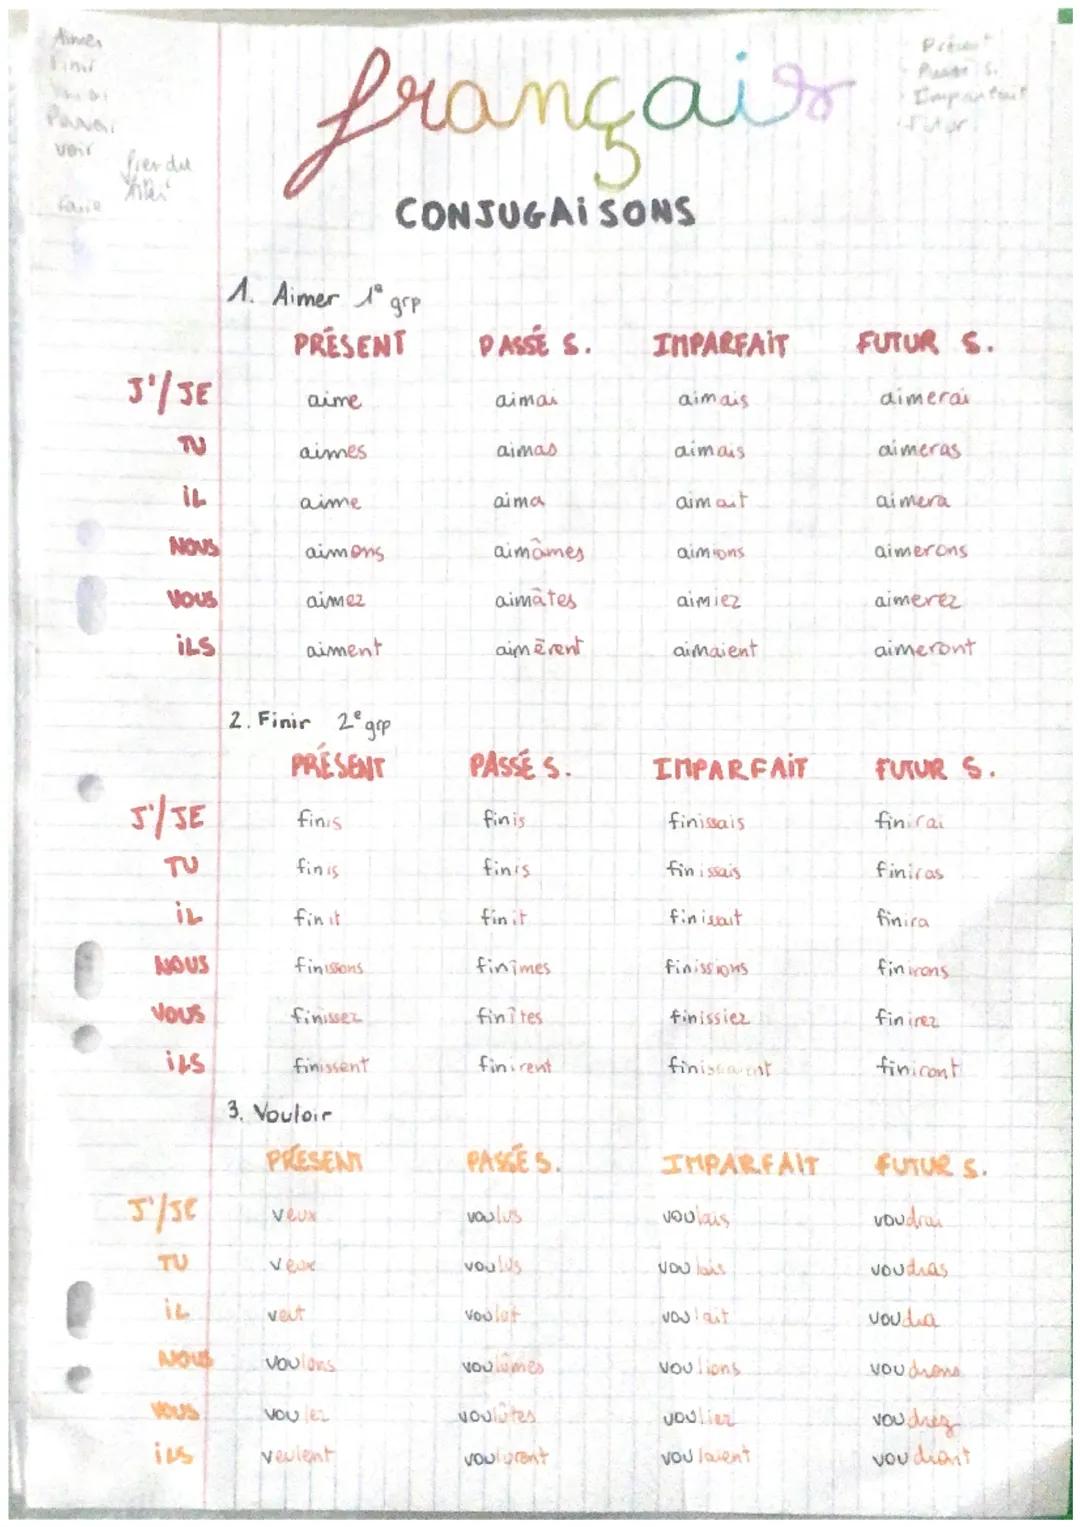 Aimer
Finir
Pouvoir
voir
faire
Prendre
Présent
Passé s.
Imparfait
Futur
français
CONJUGAiSONS
1. Aimer 1e grp
PRÉSENT PASSÉ S. IMPARFAiT FUTUR S.
J'/JE aime aimai aimais aimerai
TU aimes aimas aimais aimeras
iL aime aima aimait aimera
NOUS aimons aimâmes aimions aimerons
VOUS aimez aimâtes aimiez aimerez
iLS aiment aimèrent aimaient aimeront
2. Finir 2e grp
PRÉSENT PASSÉ S. IMPARFAiT FUTUR S.
J'/JE finis finis finissais finirai
TU finis finis finissais finiras
iL finit finit finissait finira
NOUS finissons finîmes finissions finirons
VOUS finissez finîtes finissiez finirez
iLS finissent finirent finissaient finiront
3. Vouloir
PRÉSENT PASSÉ S. IMPARFAIT FUTUR S.
J'/JE veux voulus voulais voudrai
TU veux voulus voulais voudras
iL veut voulut voulait voudra
NOUS voulons voulûmes voulions voudrons
VOUS voulez voulûtes vouliez voudrez
iLS veulent voulurent voulaient voudront